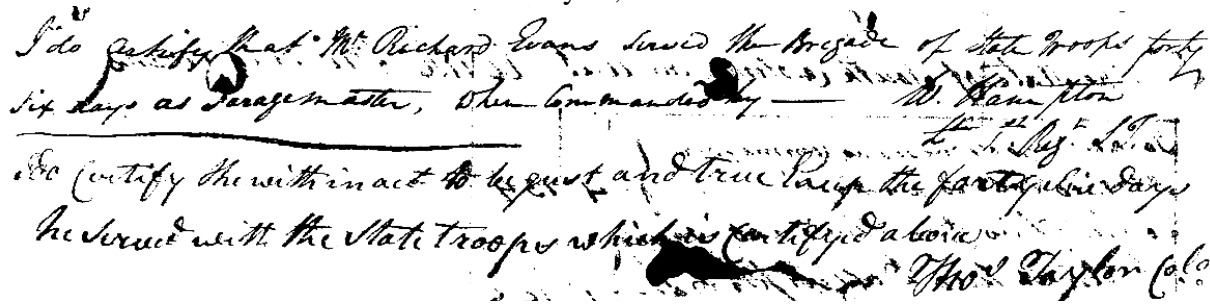 I do certify that Mr. Richard Evans Served the Brigade of State Troops forty
Six days as Foragemaster, when Commanded by — W. Hampton
Lt. 1st Regt. S.T.
I do Certify the within act to be just and true Except the forty Six Days
he Served with the State Troops which is Certifyed above
Thos. Taylor Colo